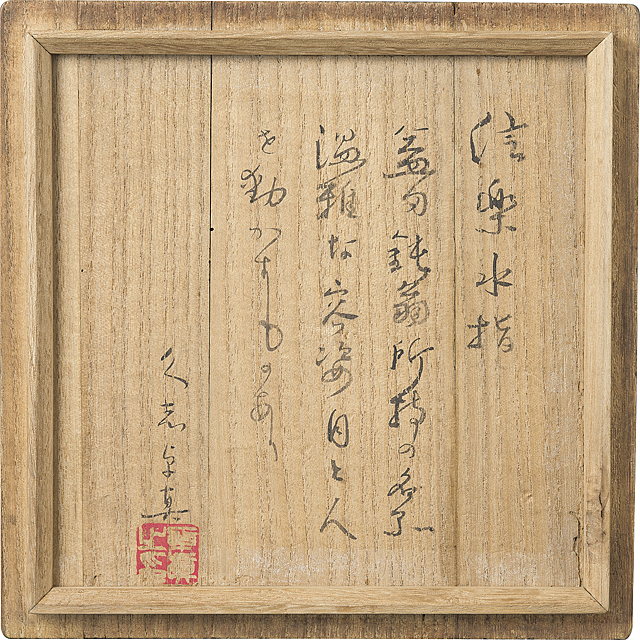 信楽水指
益田鈍翁所持の名品
温雅な容姿自と人
を動かすものあり
久志卓真